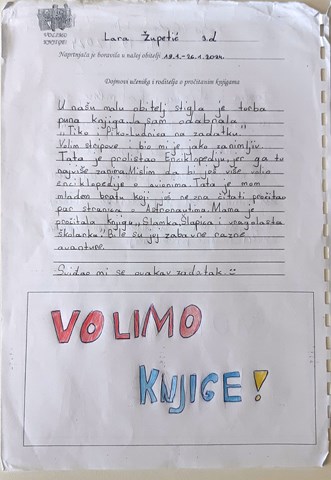 VOLIMO
KNJIGE!
Lara Župetić 3.d
Naprtnjača je boravila u našoj obitelji 19.1.-26.1.2024.
Dojmovi učenika i roditelja o pročitanim knjigama
U našu malu obitelj stigla je torba
puna knjiga. Ja sam odabrala
„Tika i Pikolaudnika na zadatku".
Volim stripove i bio mi je jako zanimljiv.
Tata je prolistao Enciklopediju, jer ga to
najviše zanima. Mislim da bi još više volio
enciklopedije o avionima. Tata je mom
mlađem bratu koji još ne zna čitati pročitao
par stranica o Astronautima. Mama je
pročitala knjigu „Slamka Šlapica i uvrnuta
školanka". Bile su joj zabavne razne
avanture.
Svidao mi se ovakav zadatak.
VOLIMO
KNJIGE!